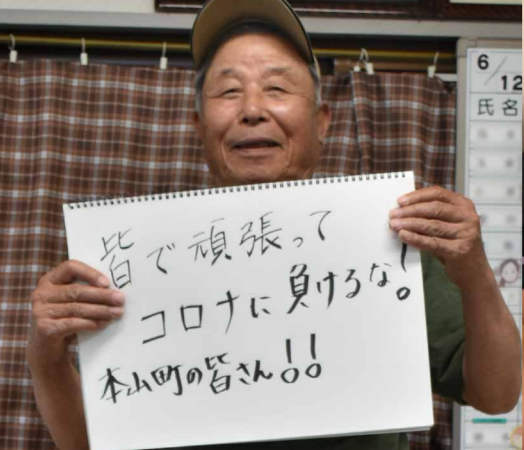 皆で頑張って
コロナに負けるな!
本山町の皆さん!!
6/12
氏名